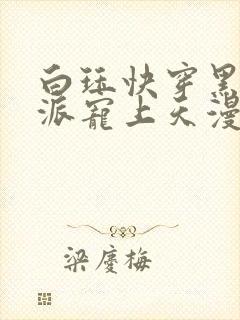 白珏快穿黑
派宠上天漫
梁庆梅